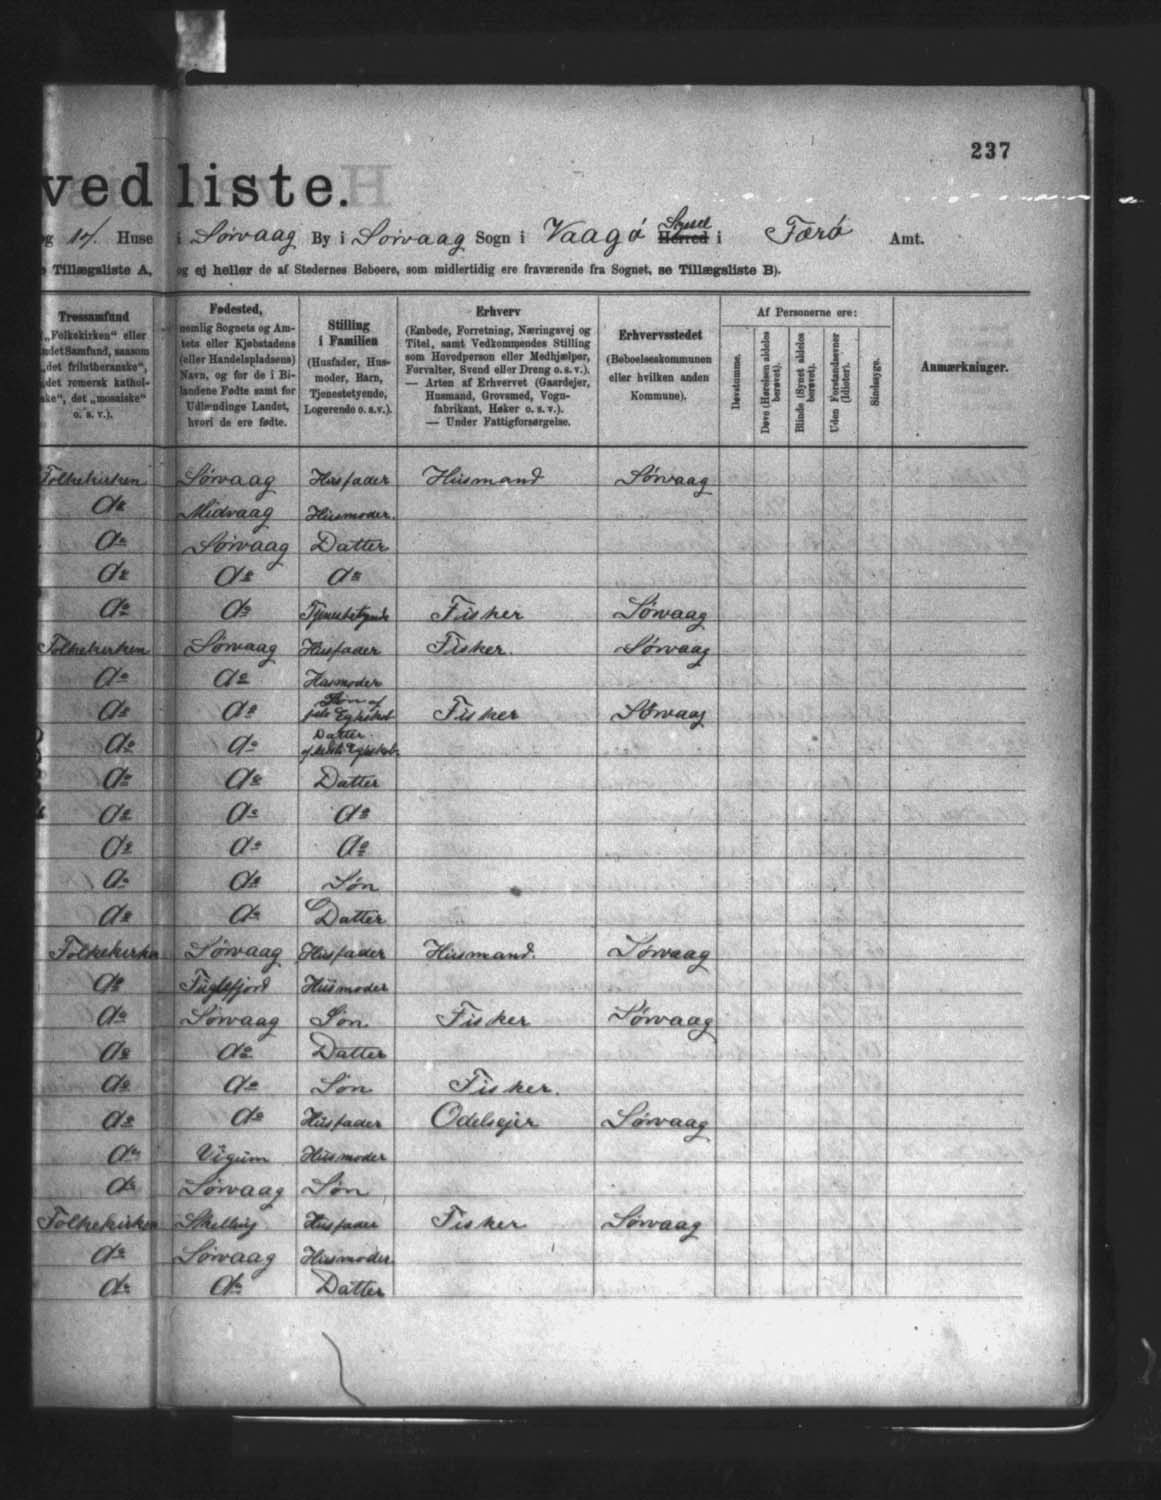 237
ved liste.
og 14. Huse i Sørvaag By i Sørvaag Sogn i Vaagø Syssel Herred i Færø Amt.
Tillægsliste A, og ej heller de af Stedernes Beboere, som midlertidig ere fraværende fra Sognet, se Tillægsliste B).
Trossamfund
(„Folkekirken“ eller
andet Samfund, saasom
„det frilutheranske“,
„det romersk kathol-
ske“, det „mosaiske“
o. s. v.).
Fødested,
nemlig Sognets og Am-
tets eller Kjøbstadens
(eller Handelspladsens)
Navn, og for de i Bi-
landene Fødte samt for
Udlændinge Landet,
hvori de ere fødte.
Stilling
i Familien
(Husfader, Hus-
moder, Barn,
Tjenestetyende,
Logerende o.s.v.).
Erhverv
(Embede, Forretning, Næringsvej og
Titel, samt Vedkommendes Stilling
som Hovedperson eller Medhjælper,
Forvalter, Svend eller Dreng o. s. v.).
— Arten af Erhvervet (Gaardejer,
Husmand, Grovsmed, Vogn-
fabrikant, Høker o. s. v.).
— Under Fattigforsørgelse.
Erhvervsstedet
(Beboelseskommunen
eller hvilken anden
Kommune).
Af Personerne ere:
Døvstumme.
Døve (Hørelsen aldeles
berøvet).
Blinde (Synet aldeles
berøvet).
Uden Forstandsevner
(Idioter).
Sindssyge.
Anmærkninger.
Folkekirken Sørvaag Husfader Husmand Sørvaag
do Midvaag Husmoder.
do Sørvaag Datter
do do do
do do Tjenestetyende Fisker Sørvaag
Folkekirken Sørvaag Husfader Fisker. Sørvaag
do do Husmoder
do do Søn af Egteskab Fisker Sørvaag
do do Datter af Egteskab
do do Datter
do do do
do do do
do do Søn
do do Datter
Folkekirken Sørvaag Husfader Husmand. Sørvaag
do Fuglefjord Husmoder
do Sørvaag Søn Fisker Sørvaag
do do Datter
do do Søn Fisker.
do do Husfader Odelsejer Sørvaag
do Vigum Husmoder
do Sørvaag Søn
Folkekirken Skelling Husfader Fisker Sørvaag
do Sørvaag Husmoder.
do do Datter